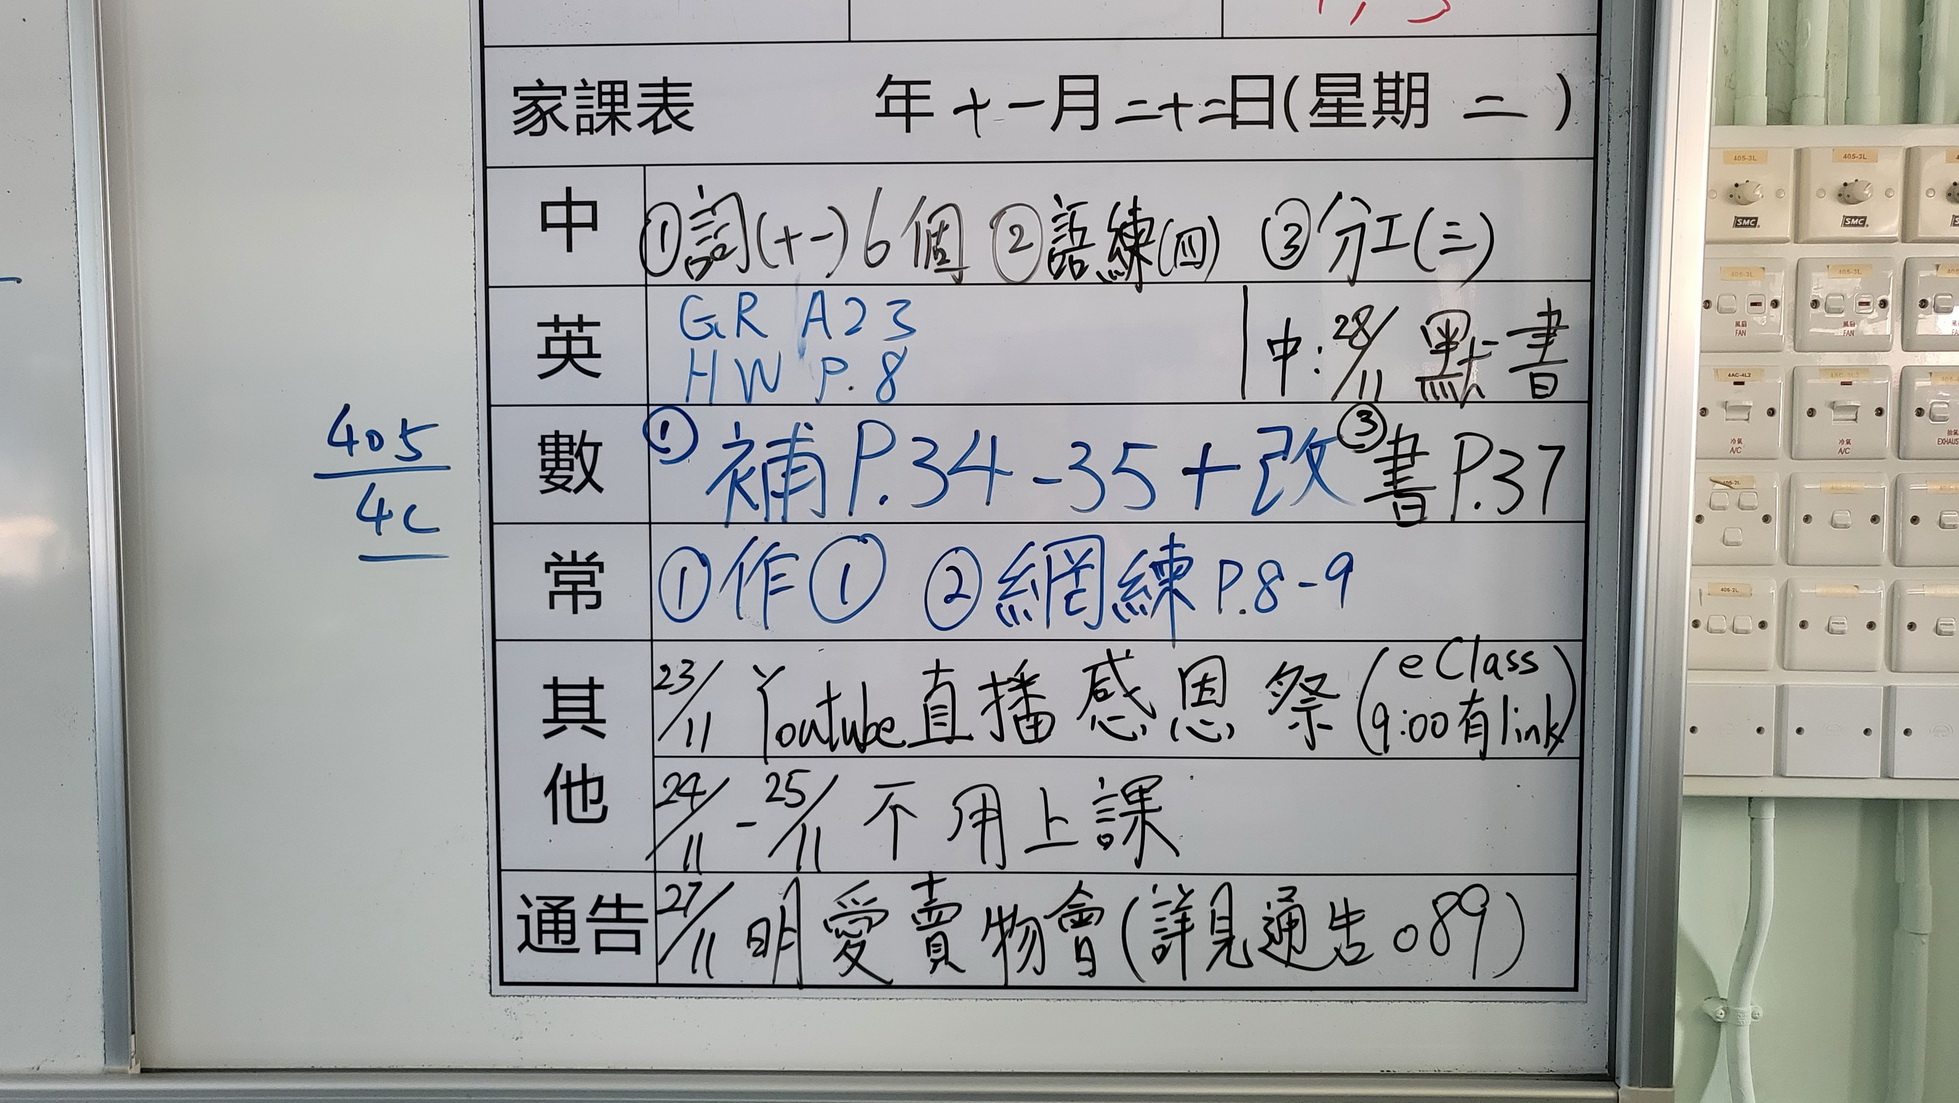 家課表 年十一月二十二日(星期 二 )
中 ①詞(十一)6個 ②語練(四) ③分工(三)
英 GR A23
HW P.8
中:28/11 默書
數 ① 補P.34-35+改 ③書P.37
405
4C
常 ①作① ②網練P.8-9
其他
23/11 Youtube直播感恩祭(eClass
9:00有link)
24/11-25/11 不用上課
通告 27/11 明愛賣物會(詳見通告089)
405-3L
405-3L
405-3L
風扇
FAN
風扇
FAN
冷氣
A/C
冷氣
A/C
SMC
SMC